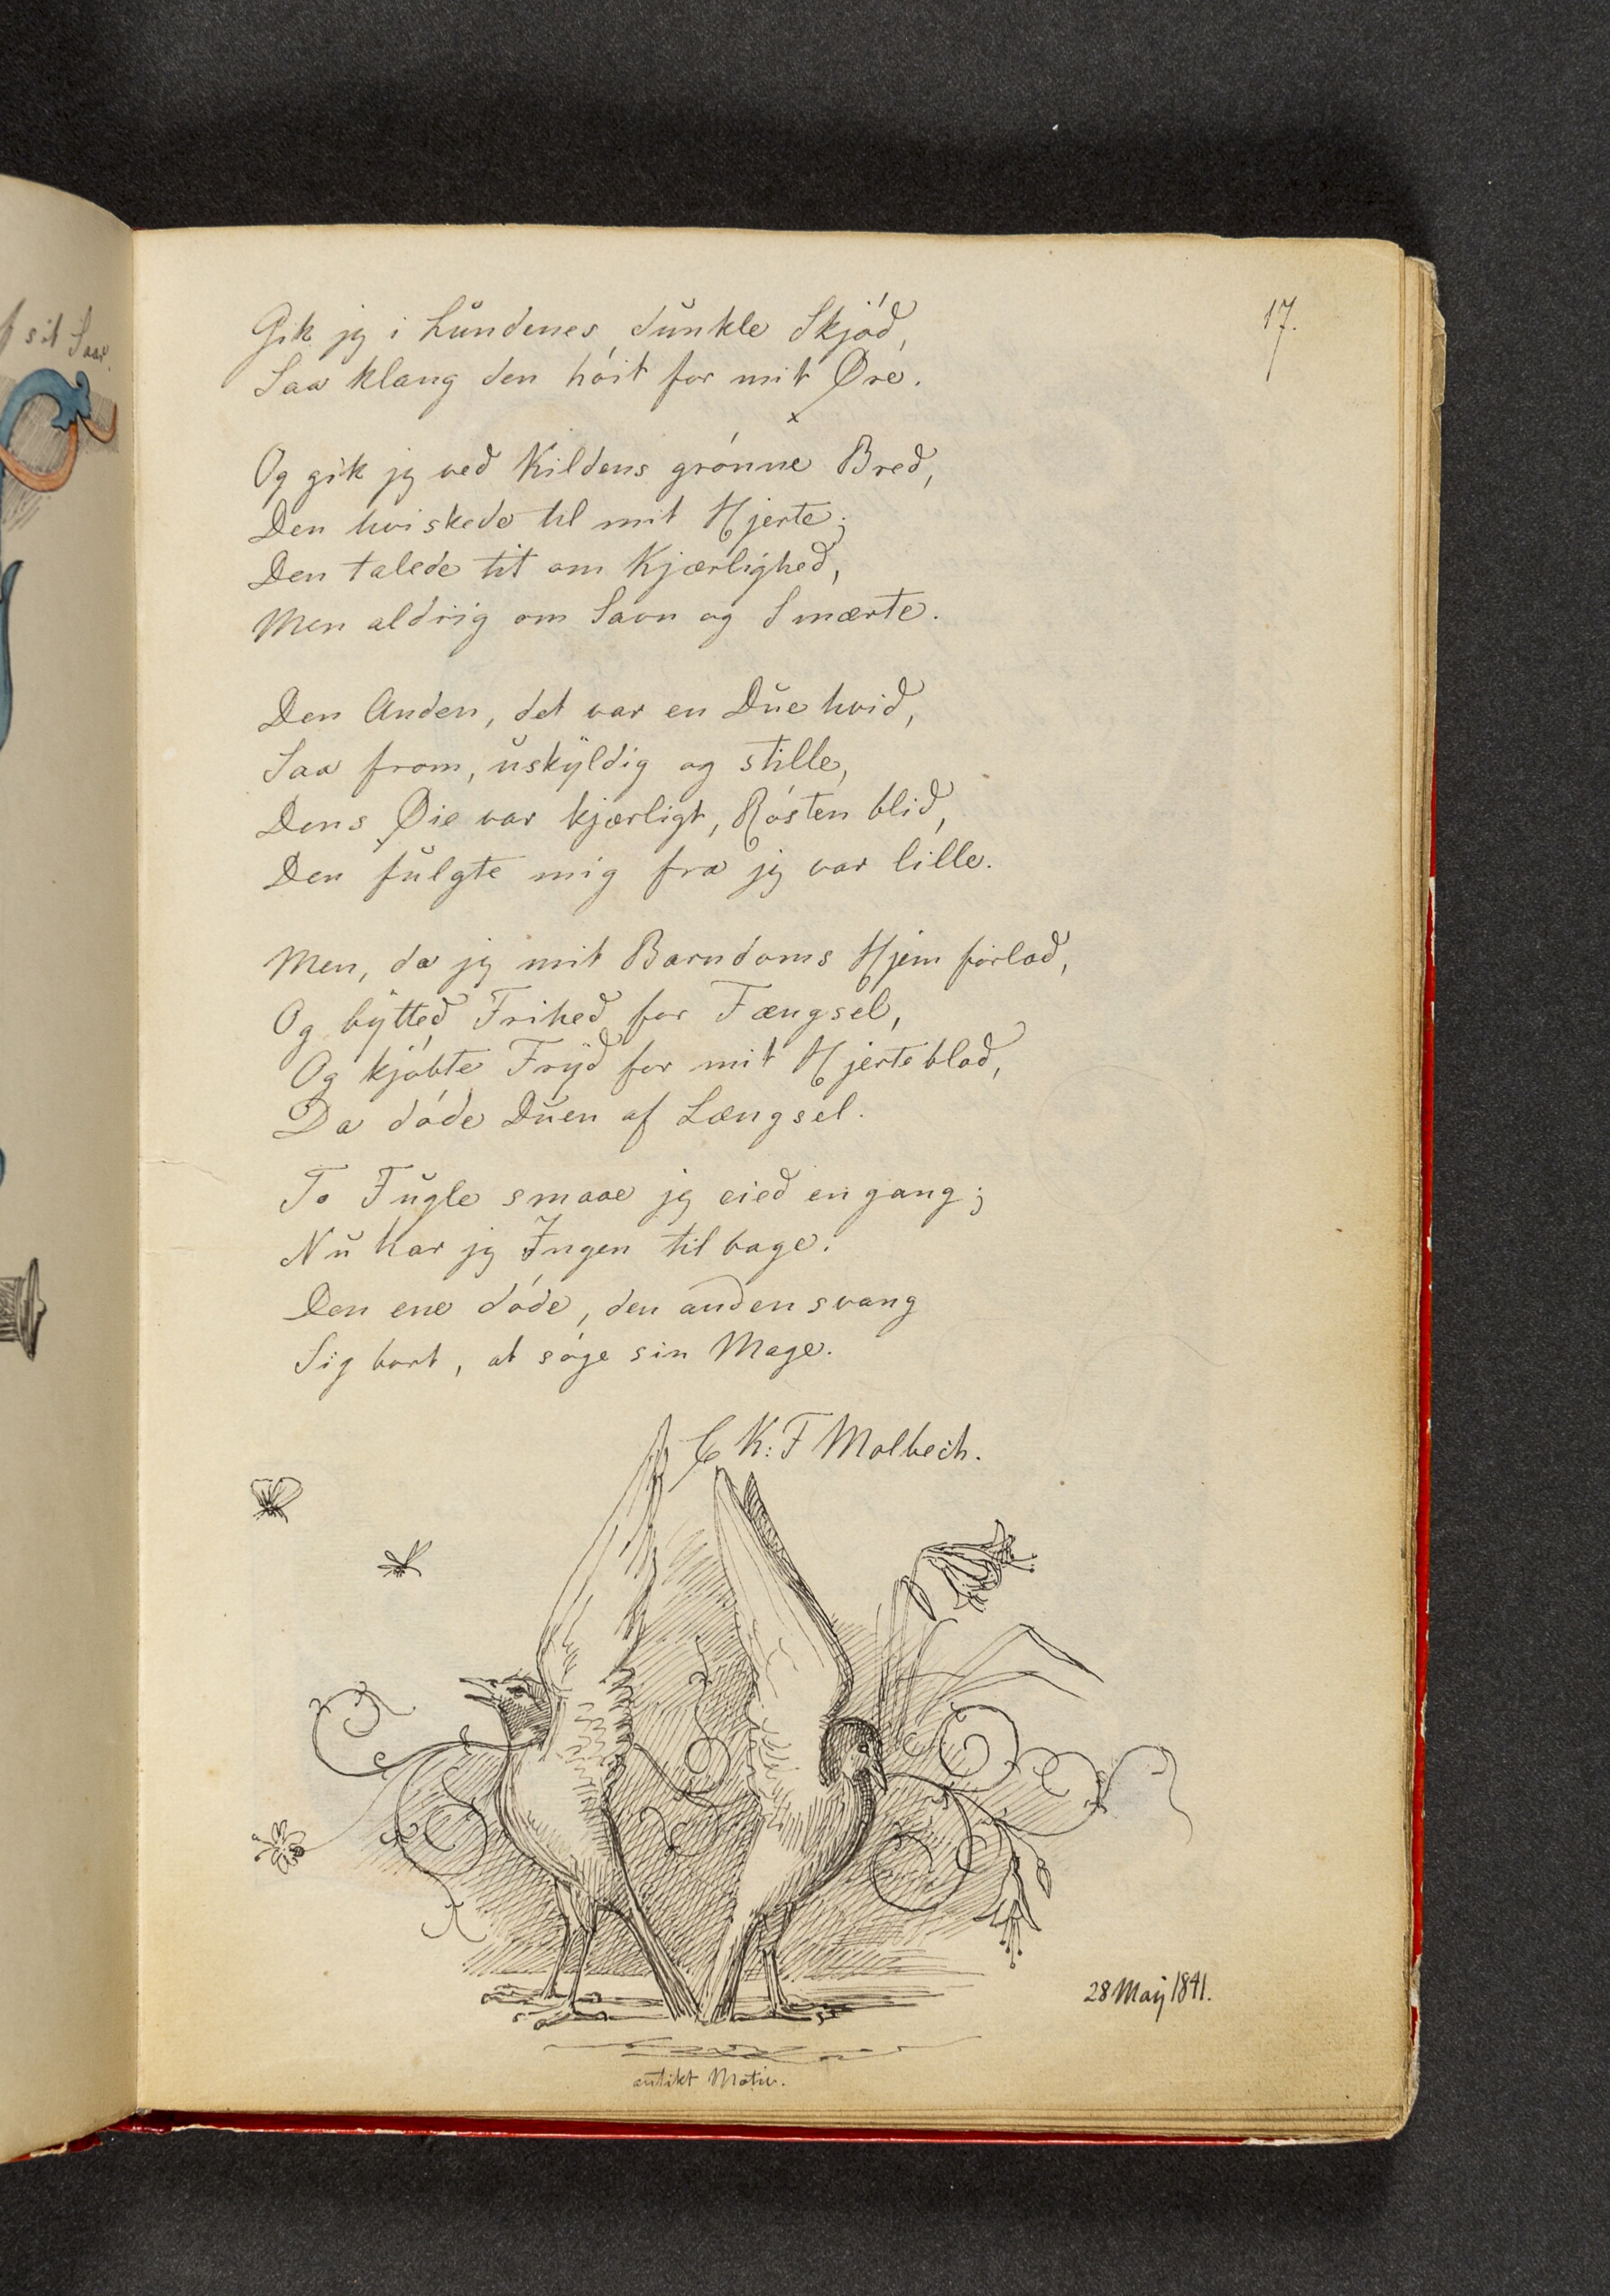 f sit Saar.
17.
Gik jeg i Lundenes dunkle Skjód,
Saa klang den hóit for mit Øre.
Og gik jeg ved Kildens grónne Bred,
Den hviskede til mit Hjerte;
Den talede tit om Kjærlighed,
Men aldrig om Savn og Smærte.
Den Anden, det var en Due hvid,
Saa from, uskÿldig og stille,
Dens Øie var kjærligt, Rósten blid,
Den fulgte mig fra jeg var lille.
Men, da jeg mit Barndoms Hjem forlod,
Og bÿtted Frihed for Fængsel,
Og kjóbte Frÿd for mit Hjerteblod,
Da dóde Duen af Længsel.
To Fugle smaae jeg eied engang;
Nu har jeg Ingen tilbage.
Den ene dóde, den anden svang
Sig bort, at sóge sin Mage.
C K: F Molbech.
28 Maÿ 1841.
antikt Motiv.